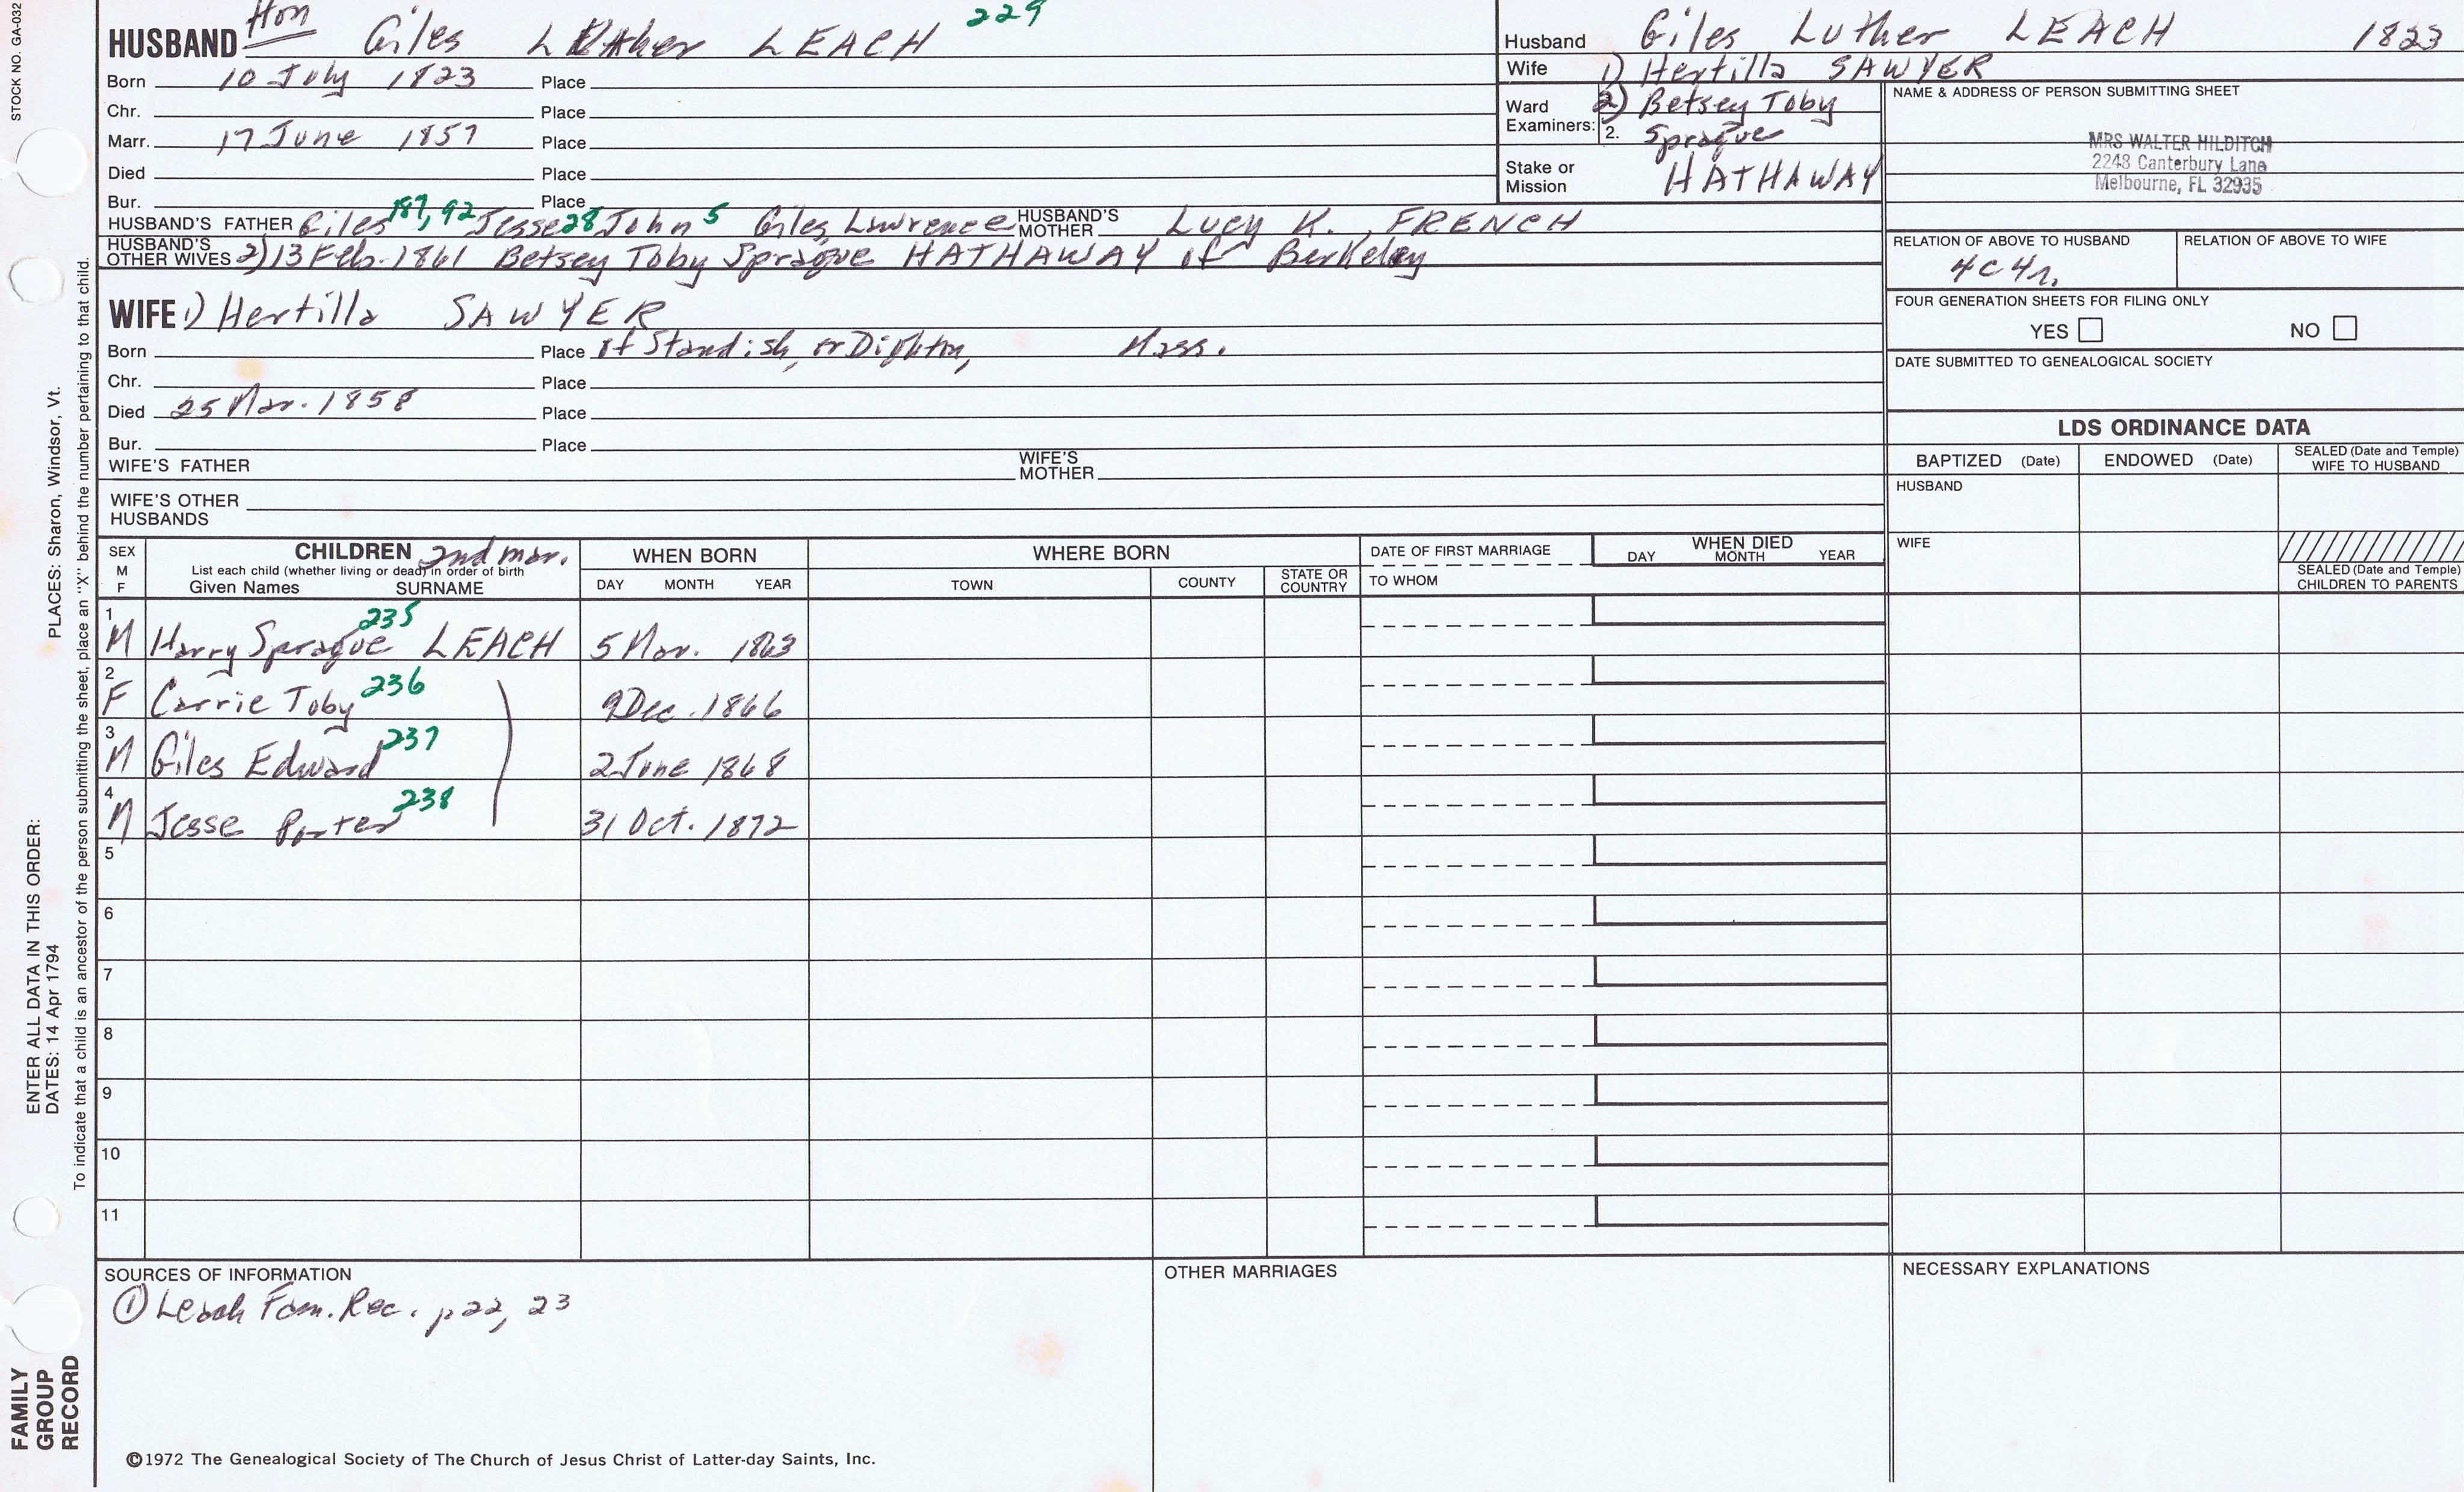 STOCK NO. GA-032
HUSBAND Hon Giles Luther LEACH 229
Born 10 July 1823 Place
Chr. Place
Marr. 17 June 1857 Place
Died Place
Bur. Place
HUSBAND'S FATHER Giles 187, 92 Jesse 28 John 5 Giles, Lawrence HUSBAND'S MOTHER Lucy K. FRENCH
HUSBAND'S OTHER WIVES 2) 13 Feb. 1861 Betsey Toby Sprague HATHAWAY of Berkeley
WIFE 1) Hertilla SAWYER
Born Place of Standish, or Dighton, Mass.
Chr. Place
Died 25 Mar. 1858 Place
Bur. Place
WIFE'S FATHER WIFE'S MOTHER
WIFE'S OTHER HUSBANDS
Husband Giles Luther LEACH 1823
Wife 1) Hertilla SAWYER
Ward Examiners: 2) Betsey Toby
2. Sprague
Stake or Mission HATHAWAY
NAME & ADDRESS OF PERSON SUBMITTING SHEET
MRS WALTER HILDITCH
2248 Canterbury Lane
Melbourne, FL 32935
RELATION OF ABOVE TO HUSBAND RELATION OF ABOVE TO WIFE
4C4r.
FOUR GENERATION SHEETS FOR FILING ONLY
YES NO
DATE SUBMITTED TO GENEALOGICAL SOCIETY
LDS ORDINANCE DATA
BAPTIZED (Date) ENDOWED (Date) SEALED (Date and Temple) WIFE TO HUSBAND
HUSBAND
WIFE
SEALED (Date and Temple) CHILDREN TO PARENTS
SEX M F
CHILDREN 2nd mar.
List each child (whether living or dead) in order of birth
Given Names SURNAME
WHEN BORN
DAY MONTH YEAR
WHERE BORN
TOWN COUNTY STATE OR COUNTRY
DATE OF FIRST MARRIAGE
TO WHOM
WHEN DIED
DAY MONTH YEAR
1 M Harry Sprague 235 LEACH 5 Mar. 1863
2 F Carrie Toby 236 9 Dec. 1866
3 M Giles Edward 237 2 June 1868
4 M Jesse Porter 238 31 Oct. 1872
5
6
7
8
9
10
11
SOURCES OF INFORMATION
① Leach Fam. Rec. p 22, 23
OTHER MARRIAGES
NECESSARY EXPLANATIONS
©1972 The Genealogical Society of The Church of Jesus Christ of Latter-day Saints, Inc.
FAMILY GROUP RECORD
ENTER ALL DATA IN THIS ORDER:
DATES: 14 Apr 1794
PLACES: Sharon, Windsor, Vt.
To indicate that a child is an ancestor of the person submitting the sheet, place an "X" behind the number pertaining to that child.